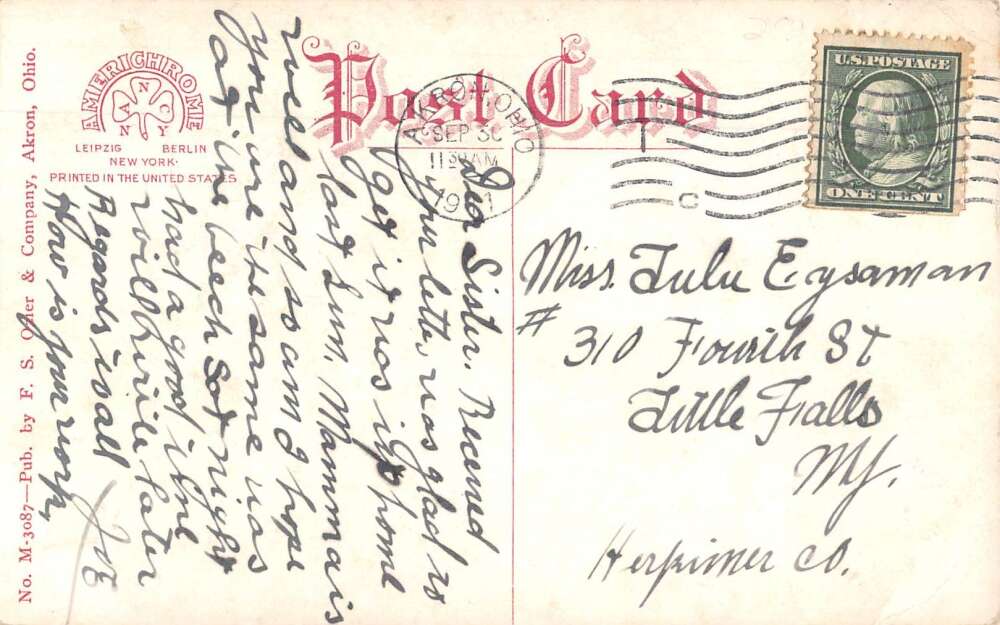 AMERICHROME
ANC
NY
LEIPZIG BERLIN
NEW YORK.
PRINTED IN THE UNITED STATES
Post Card
AKRON, OHIO
SEP 30
11 30 AM
U.S. POSTAGE
ONE CENT
C
No. M-3087—Pub. by F. S. Orner & Company, Akron, Ohio.
Dear Sister. Received
your letter, was glad to
get it was up home
last Sun. Mamma is
well and so am I hope
you are the same was
at the beech Sat night
had a good time
will write later
Regards is all
How is your work,
Joe
Miss. Lulu Eygaman
# 310 Fourth St
Little Falls
NY.
Herkimer Co.